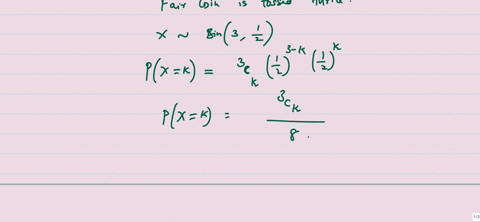 Fair coin is tossed
X ~ Bin(3, 1/2)
P(X=k) = ³C_k (1/2)^(3-k) (1/2)^k
P(X=k) = ³C_k / 8
1/3